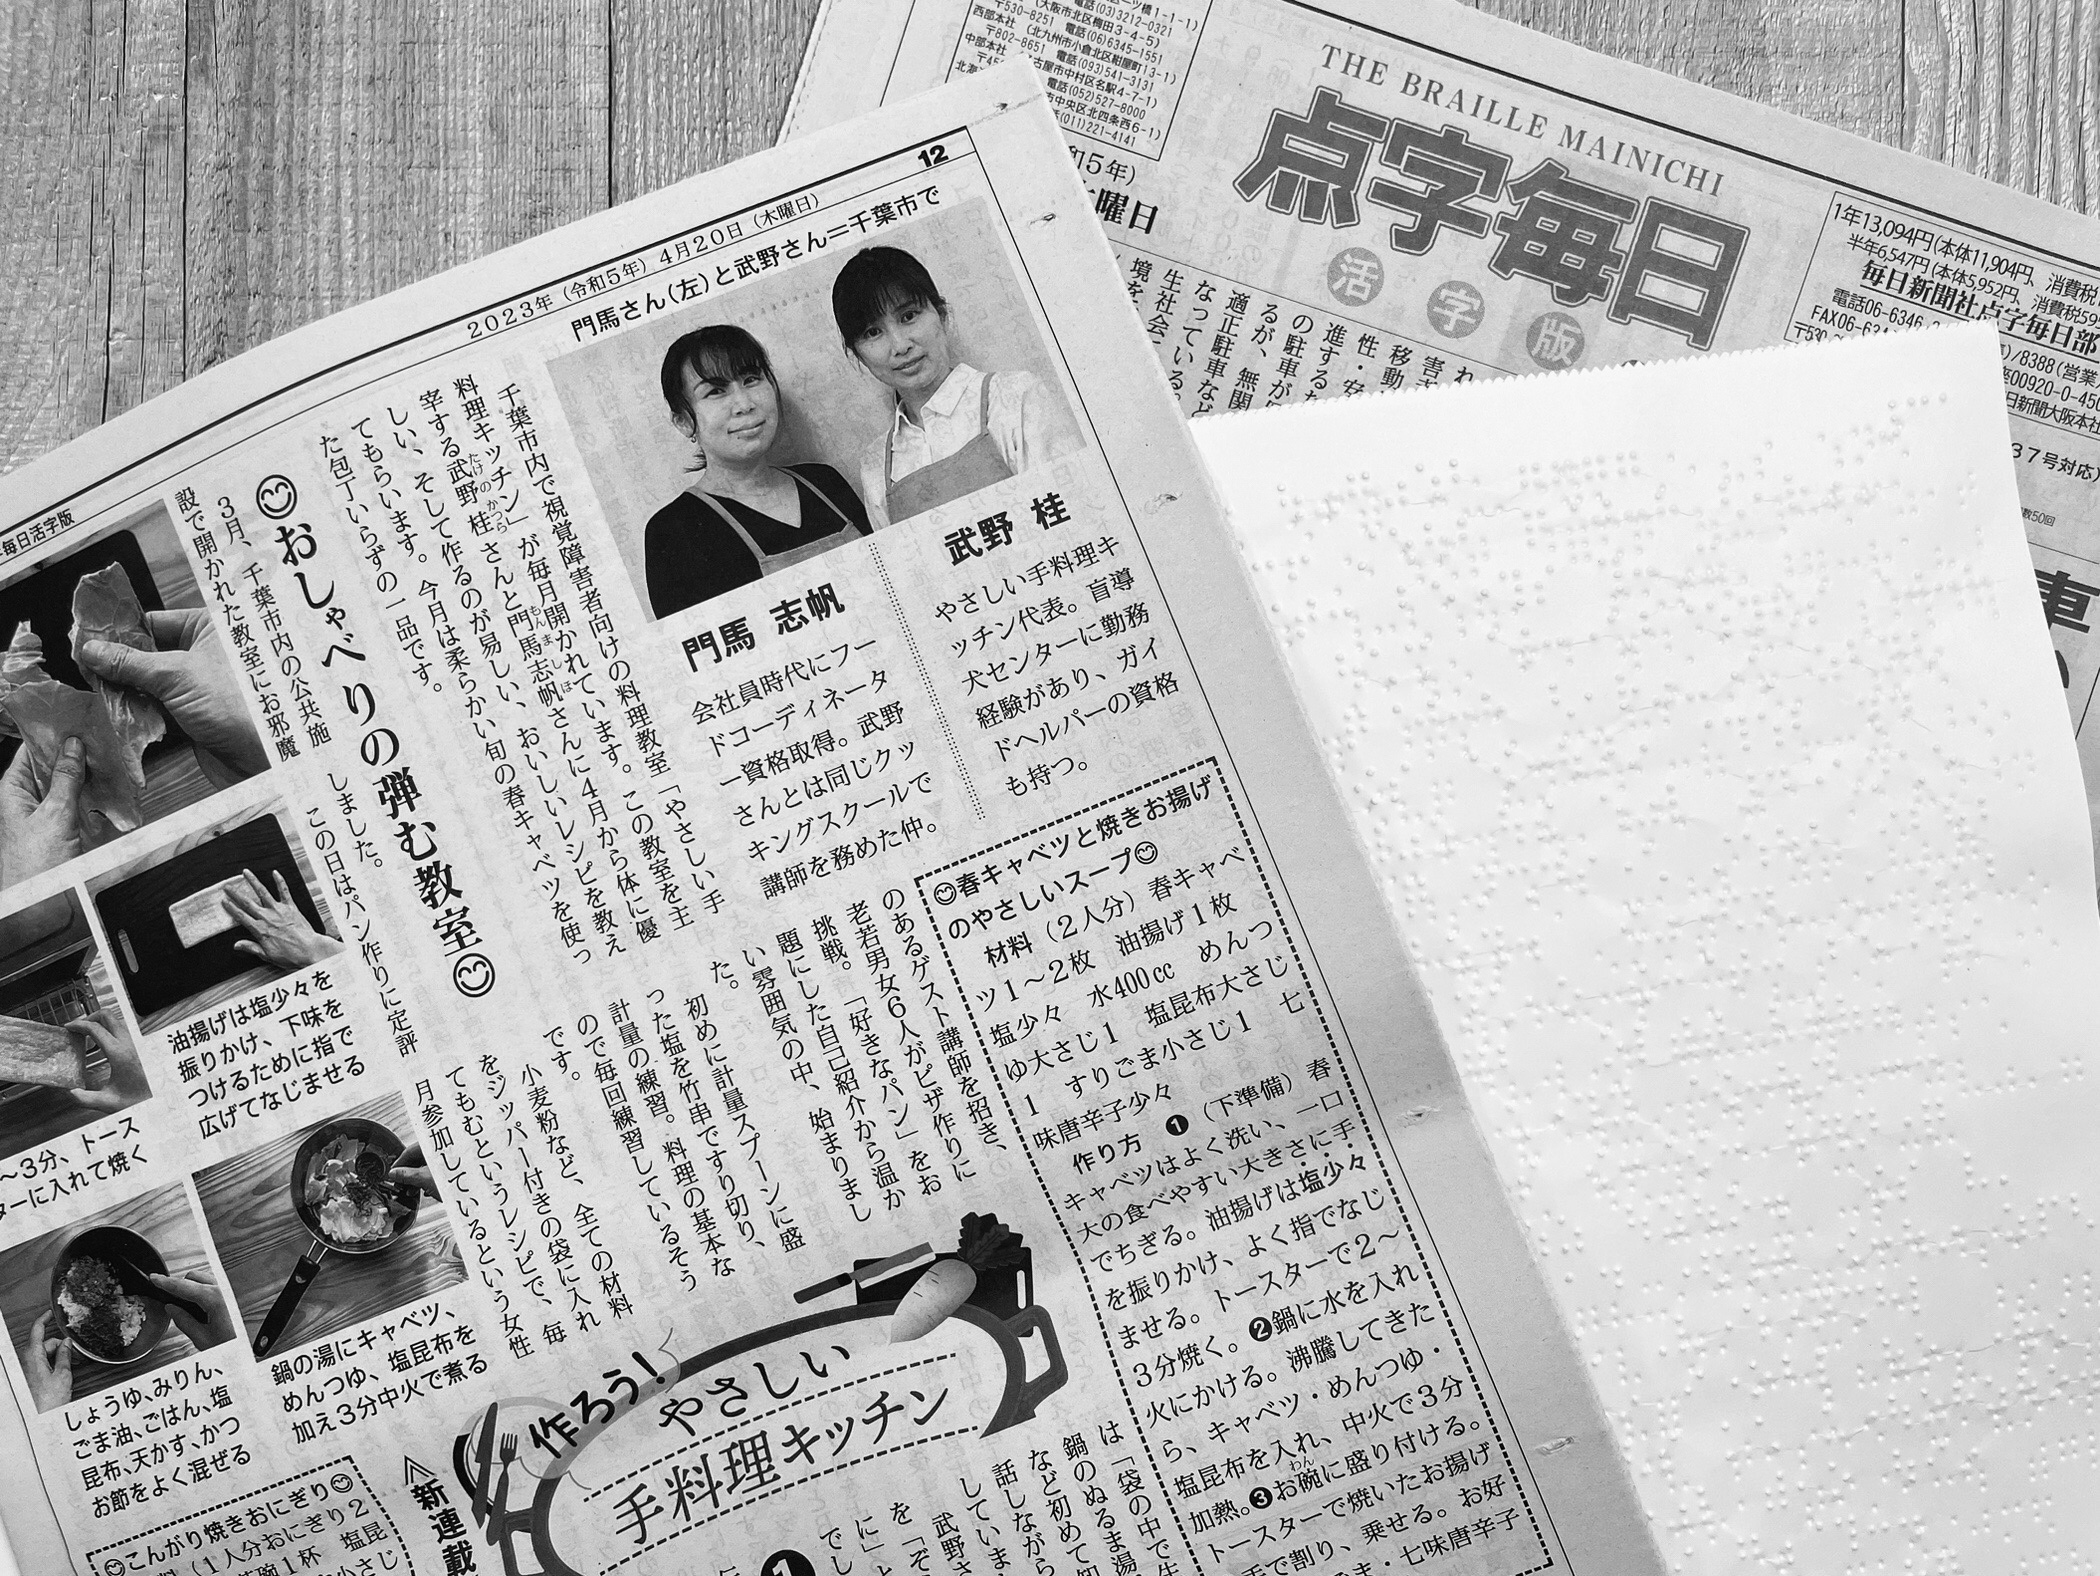 12
2023年（令和5年）4月20日（木曜日）
門馬さん（左）と武野さん＝千葉市で
武野 桂
やさしい手料理キ
ッチン代表。盲導
犬センターに勤務
経験があり、ガイ
ドヘルパーの資格
も持つ。
門馬 志帆
会社員時代にフー
ドコーディネータ
ー資格取得。武野
さんとは同じクッ
キングスクールで
講師を務めた仲。
千葉市内で視覚障害者向けの料理教室「やさしい手
料理キッチン」が毎月開かれています。この教室を主
宰する武野桂さんと門馬志帆さんに4月から体に優
しい、そして作るのが易しい、おいしいレシピを教え
てもらいます。今月は柔らかい旬の春キャベツを使っ
た包丁いらずの一品です。
たけのかつら
もんましほ
おしゃべりの弾む教室
3月、千葉市内の公共施
設で開かれた教室にお邪魔
しました。
この日はパン作りに定評
のあるゲスト講師を招き、
老若男女6人がピザ作りに
挑戦。「好きなパン」をお
題にした自己紹介から温か
い雰囲気の中、始まりまし
た。
初めに計量スプーンに盛
った塩を竹串ですり切り、
計量の練習。料理の基本な
ので毎回練習しているそう
です。
小麦粉など、全ての材料
をジッパー付きの袋に入れ
てもむというレシピで、毎
月参加しているという女性
は「袋の中で生
鍋のぬるま湯
など初めて知
話しながら
していま
武野さ
を「ぞ
に」と
でし
毎日活字版
油揚げは塩少々を
振りかけ、下味を
つけるために指で
広げてなじませる
～3分、トース
ターに入れて焼く
鍋の湯にキャベツ、
めんつゆ、塩昆布を
加え3分中火で煮る
しょうゆ、みりん、
ごま油、ごはん、塩
昆布、天かす、かつ
お節をよく混ぜる
こんがり焼きおにぎり
（1人分おにぎり2
1杯 塩昆
小さじ
新連載
作ろう！
やさしい
手料理キッチン
1
春キャベツと焼きお揚げ
のやさしいスープ
材料（2人分）春キャベ
ツ1～2枚 油揚げ1枚
塩少々 水400cc めんつ
ゆ大さじ1 塩昆布大さじ
1 すりごま小さじ1 七
味唐辛子少々
作り方 ❶（下準備）春
キャベツはよく洗い、一口
大の食べやすい大きさに手
でちぎる。油揚げは塩少々
を振りかけ、よく指でなじ
ませる。トースターで2～
3分焼く。❷鍋に水を入れ
火にかける。沸騰してきた
ら、キャベツ・めんつゆ・
塩昆布を入れ、中火で3分
加熱。❸お碗に盛り付ける。
わん
トースターで焼いたお揚げ
手で割り、乗せる。お好
ま・七味唐辛子
THE BRAILLE MAINICHI
点字毎日
活字版
ツ橋1-1-1）
電話(03)3212-0321
（大阪市北区梅田3-4-5）
〒530-8251 電話(06)6345-1551
西部本社 （北九州市小倉北区紺屋町13-1）
〒802-8651 電話(093)541-3131
中部本社
古屋市中村区名駅4-7-1）
電話(052)527-8000
市中央区北四条西6-1）
(011)221-4141
和5年）
曜日
1年13,094円（本体11,904円、消費税
半年6,547円（本体5,952円、消費税59
毎日新聞社点字毎日部
電話06-6346-
FAX06-634
〒530-
/8388（営業
00920-0-450
日新聞大阪本社
37号対応）
数50回
車
害
移動
性・安
進するた
の駐車が
るが、無関
適正駐車など
なっている。
生社会
境を